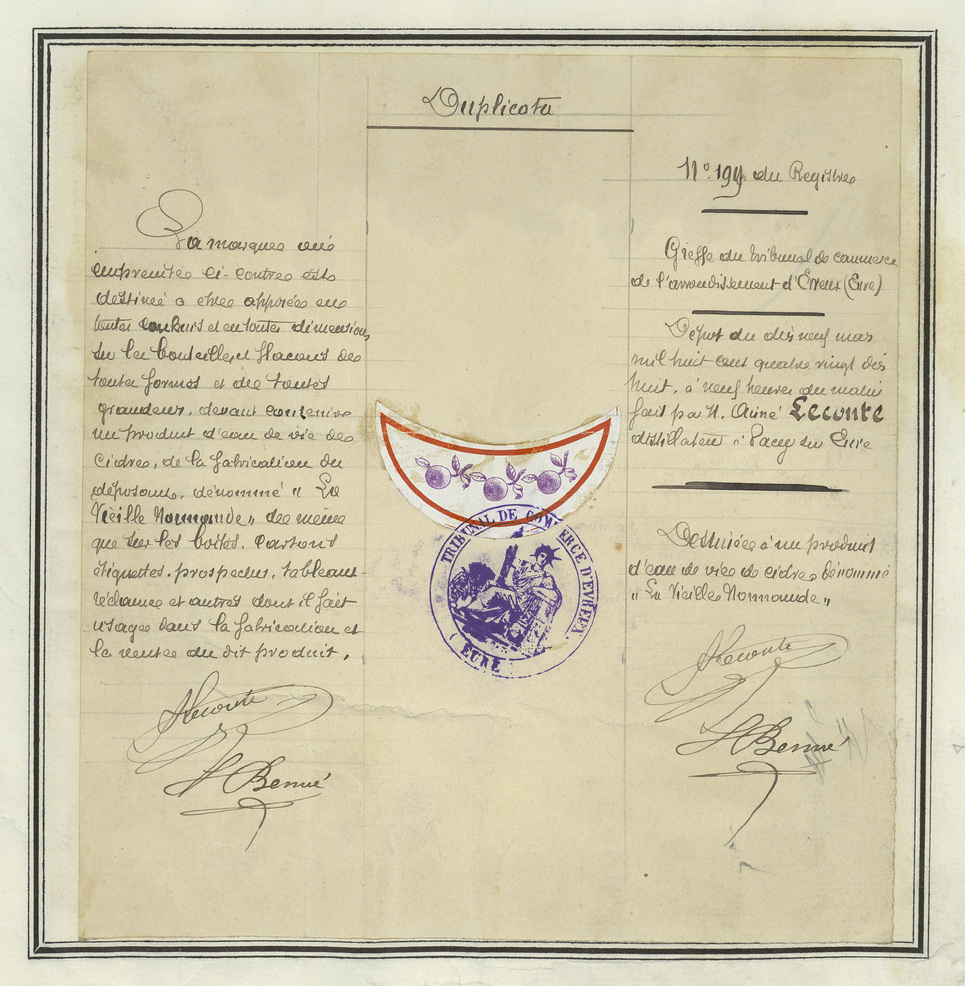 Duplicata
La marque une
empreinte ci-contre est
destinée a etre apposée en
toutes couleurs et en toutes dimensions
sur les bouteilles et flacons de
toutes formes et de toutes
grandeurs, devant contenir
un produit d'eau de vie de
Cidre, de la fabrication du
déposant, dénommé " La
Vieille Normande " de même
que sur les boites, cartons
étiquettes, prospectus, tableaux-
réclames et autres dont il fait
usage dans la fabrication et
la vente du dit produit.
ALeconte
Bonné
TRIBUNAL DE COMMERCE D'EVREUX
( EURE )
N° 199 du Registre
Greffe du tribunal de commerce
de l'arrondissement d'Evreux (Eure)
Dépot du dix neuf mars
mil huit cent quatre vingt dix
huit, à neuf heures du matin
fait par M. Aimé Leconte
distillateur à Pacy sur Eure
Destinée à un produit
d'eau de vie de cidre dénommé
" La Vieille Normande "
ALeconte